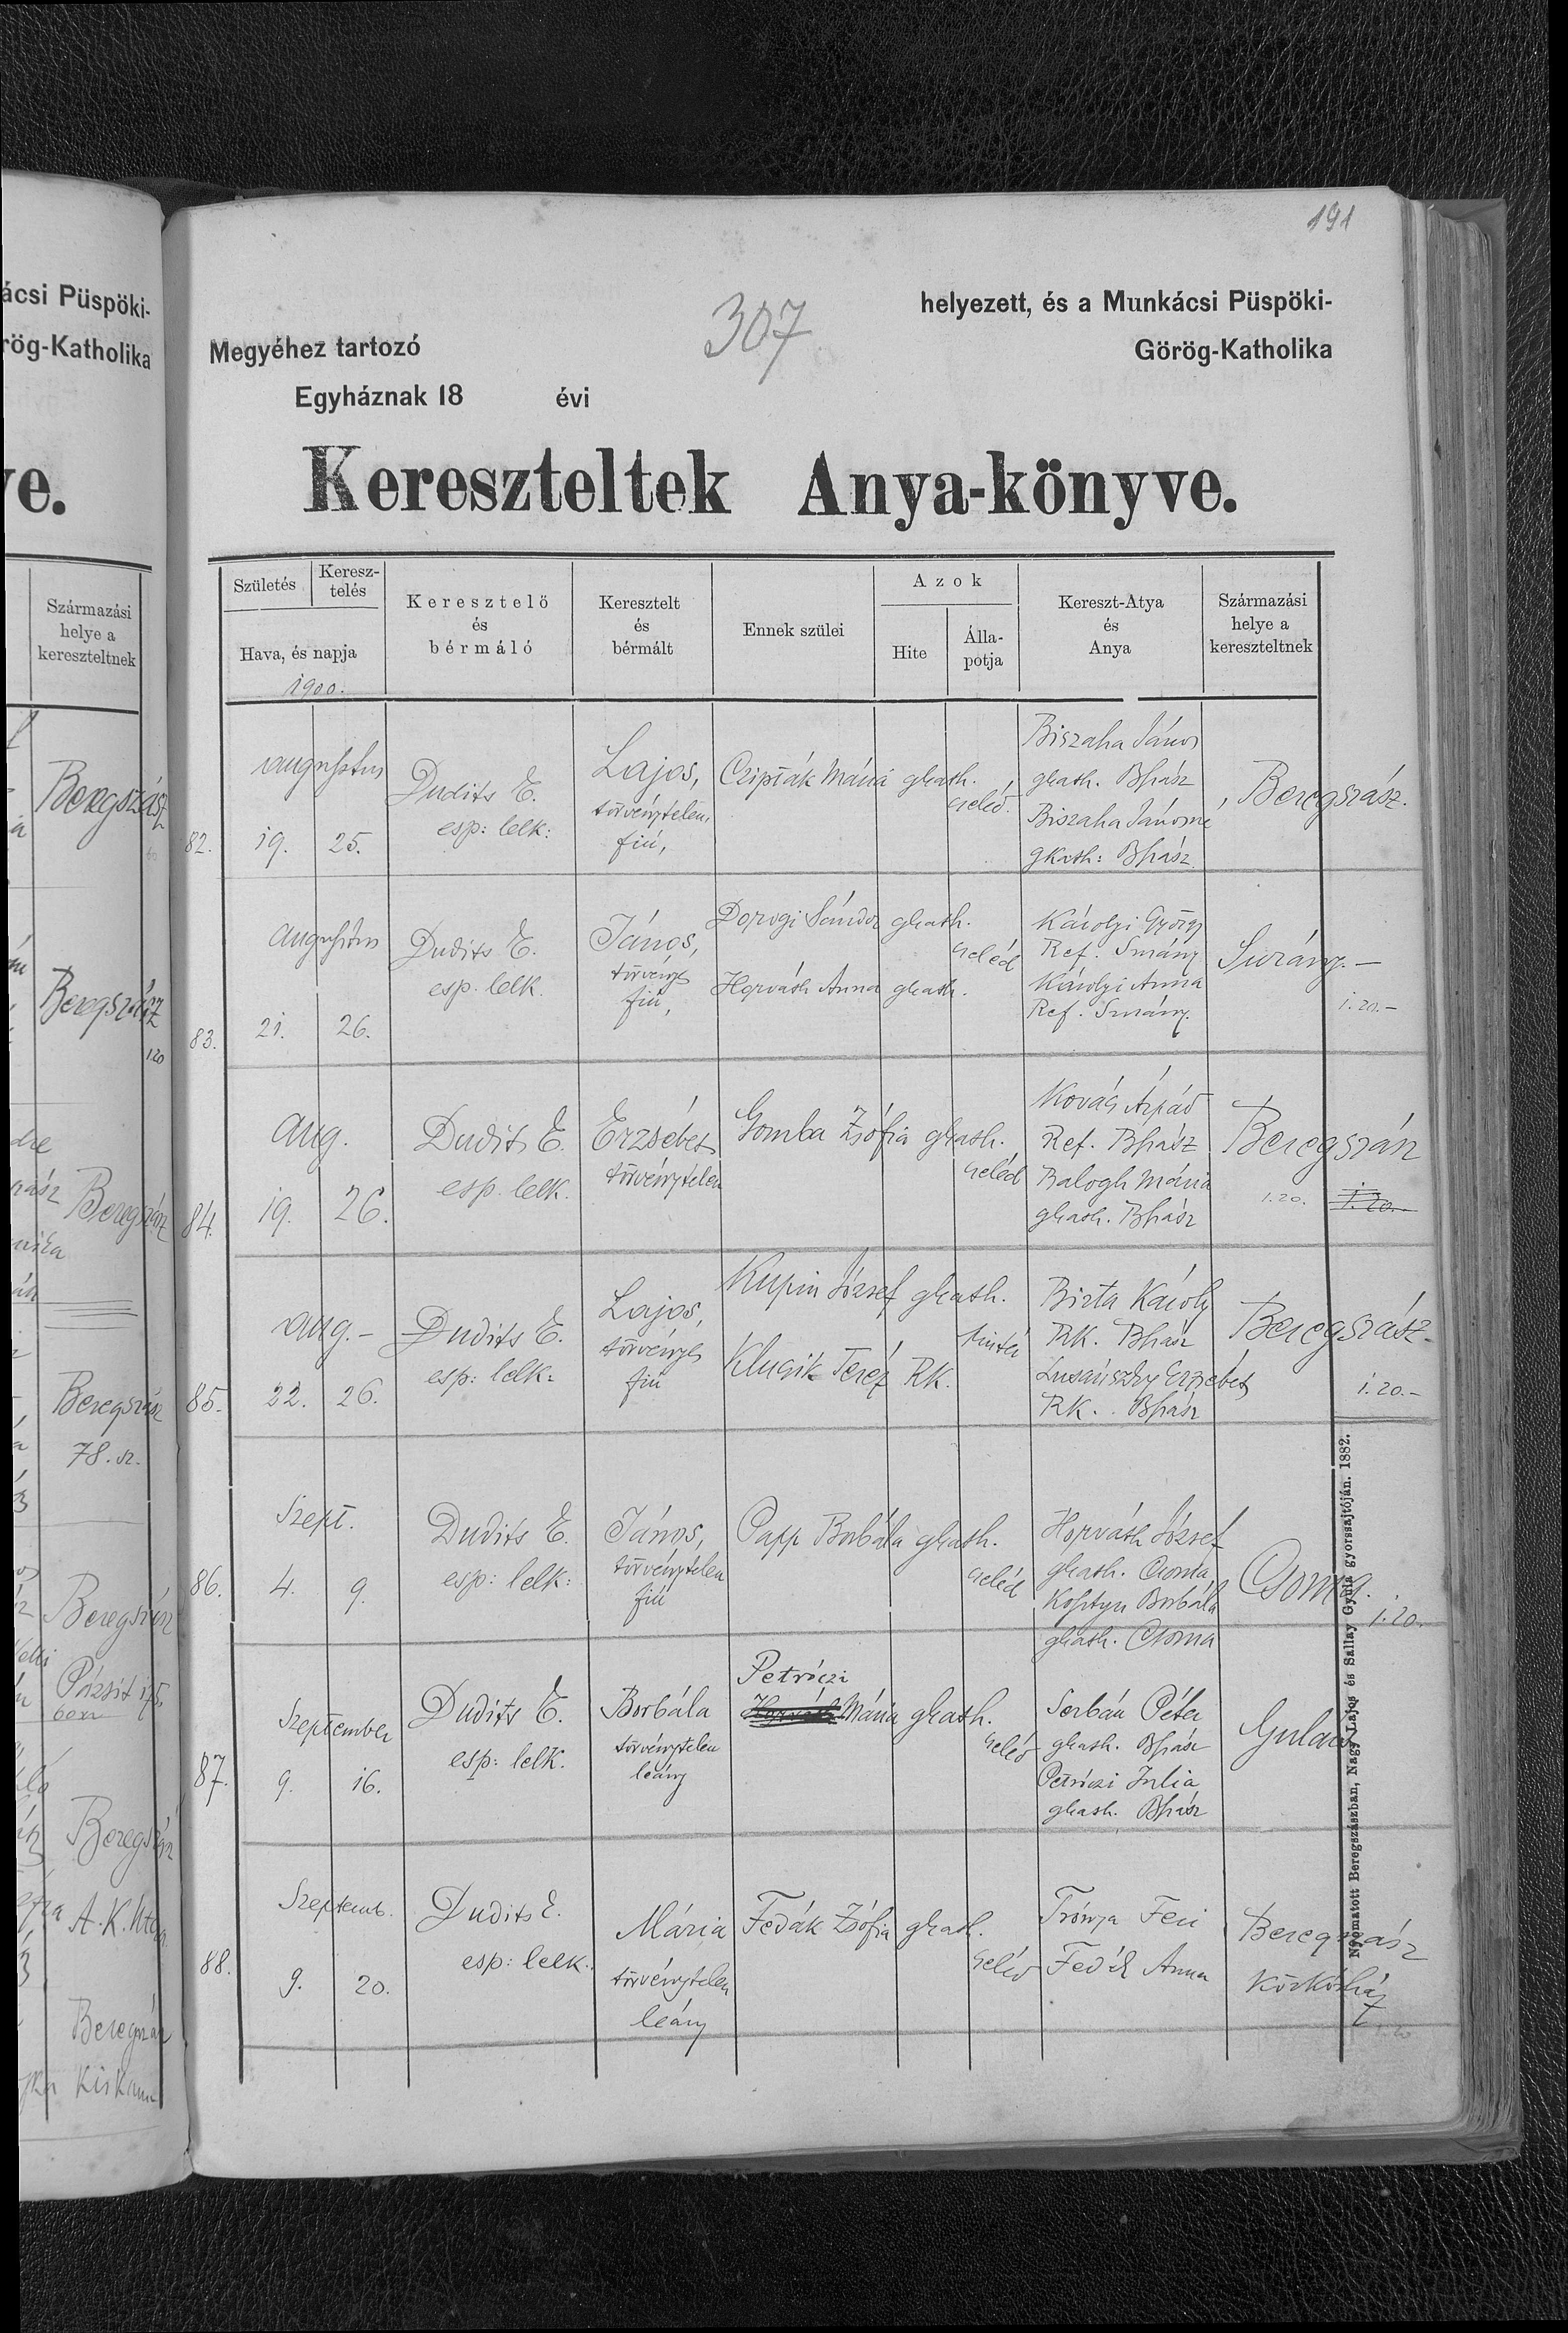 191
307
helyezett, és a Munkácsi Püspöki-
Megyéhez tartozó Görög-Katholika
Egyháznak 18 évi
Kereszteltek Anya-könyve.
Születés Keresz-telés Keresztelő és bérmáló Keresztelt és bérmált Ennek szülei Azok Kereszt-Atya és Anya Származási helye a kereszteltnek
Hava, és napja Hite Álla-potja
1900.
82. augusztus 19. 25.
Dudits E.
esp: lelk:
Lajos,
törvénytelen,
fiú,
Mária gkath.
cseléd.
Biszaha János
gkath. Bszász
Biszaha Jánosné
gkath: Bszász
Beregszász.
83. augusztus 21. 26.
Dudits E.
esp. lelk.
János,
törvényes
fiú,
Dorogi Sándor gkath.
Horváth Anna gkath.
cseléd
Károlyi György
Ref. Surány
Károlyi Anna
Ref. Surány.
Surány.-
1.20.-
84. aug. 19. 26.
Dudits E.
esp. lelk.
Erzsébet
törvénytelen
Gomba Zsófia gkath.
cseléd
Kovács Árpád
Ref. Bszász
Balogh Mária
gkath. Bszász
Beregszász
1.20. 1.20.-
85. aug.- 22. 26.
Dudits E.
esp: lelk:
Lajos,
törvényes
fiú
Kupin József gkath.
Teréz RK.
Birta Károly
RK. Bszász
Erzsébet
RK. Bszász
Beregszász-
1.20.-
86. Szept. 4. 9.
Dudits E.
esp: lelk:
János,
törvénytelen
fiú
Papp Borbála gkath.
cseléd
Horváth József
gkath. Csoma
Borbála
gkath. Csoma
Csoma.
1.20.
87. Szeptember 9. 16.
Dudits E.
esp: lelk.
Borbála
törvénytelen
leány
Petróczi
Horváth Mária gkath.
cseléd
Serbán Péter
gkath. Bszász
Petróczi Julia
gkath. Bszász
Gulács
88. Szeptemb. 9. 20.
Dudits E.
esp: lelk.
Mária
törvénytelen
leány
Fedák Zsófia gkath.
cseléd
Feri
Fedák Anna
Beregszász
Közkórház
1.20
Nyomatott Beregszászban, Nagy Lajos és Sallay Gyula gyorssajtóján. 1882.
ácsi Püspöki-
rög-Katholika
ve.
Származási
helye a
kereszteltnek
Beregszász
Beregszász
120
Beregszász
Beregszász
78. sz.
Beregszász
Beregszász
Beregszász